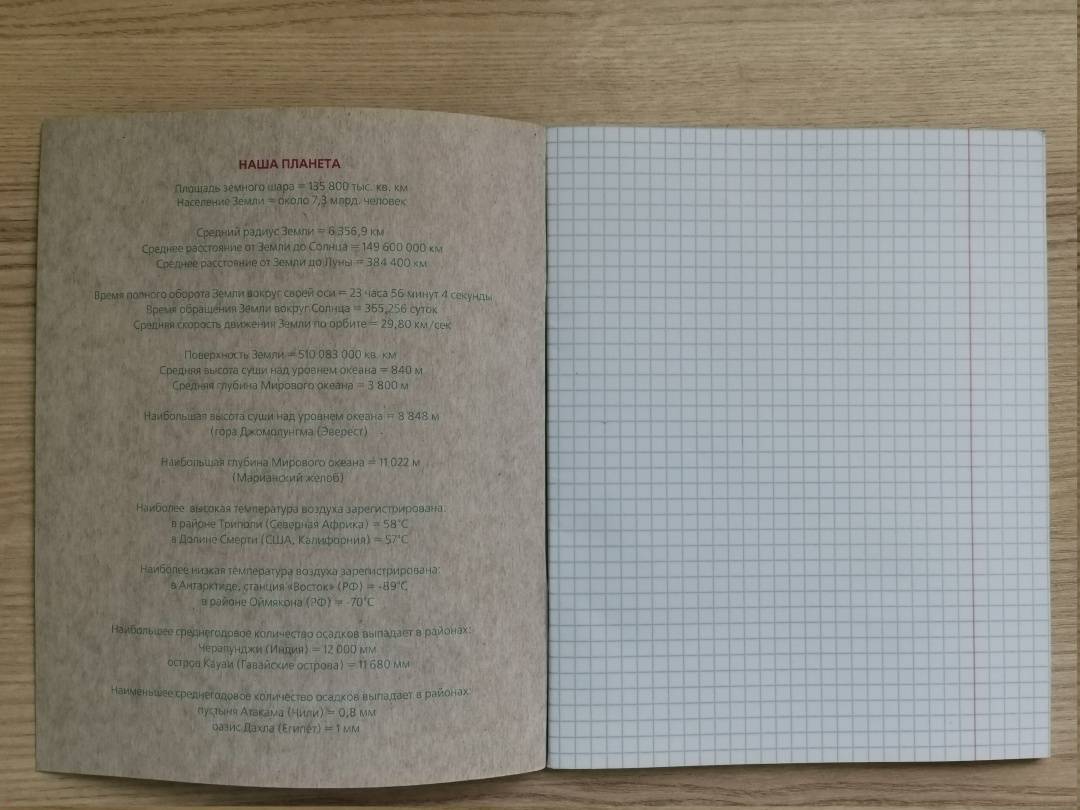 НАША ПЛАНЕТА
Площадь земного шара = 135 800 тыс. кв. км
Население Земли = около 7,3 млрд. человек
Средний радиус Земли = 6 356,9 км
Среднее расстояние от Земли до Солнца = 149 600 000 км
Среднее расстояние от Земли до Луны = 384 400 км
Время полного оборота Земли вокруг своей оси = 23 часа 56 минут 4 секунды
Время обращения Земли вокруг Солнца = 365,256 суток
Средняя скорость движения Земли по орбите = 29,80 км/сек
Поверхность Земли = 510 083 000 кв. км
Средняя высота суши над уровнем океана = 840 м
Средняя глубина Мирового океана = 3 800 м
Наибольшая высота суши над уровнем океана = 8 848 м
(гора Джомолунгма (Эверест)
Наибольшая глубина Мирового океана = 11 022 м
(Марианский желоб)
Наиболее высокая температура воздуха зарегистрирована:
в районе Триполи (Северная Африка) = 58°С
в Долине Смерти (США, Калифорния) = 57°С
Наиболее низкая температура воздуха зарегистрирована:
в Антарктиде, станция «Восток» (РФ) = -89°С
в районе Оймякона (РФ) = -70°С
Наибольшее среднегодовое количество осадков выпадает в районах:
Черапунджи (Индия) = 12 000 мм
остров Кауаи (Гавайские острова) = 11 680 мм
Наименьшее среднегодовое количество осадков выпадает в районах:
пустыня Атакама (Чили) = 0,8 мм
оазис Дахла (Египет) = 1 мм